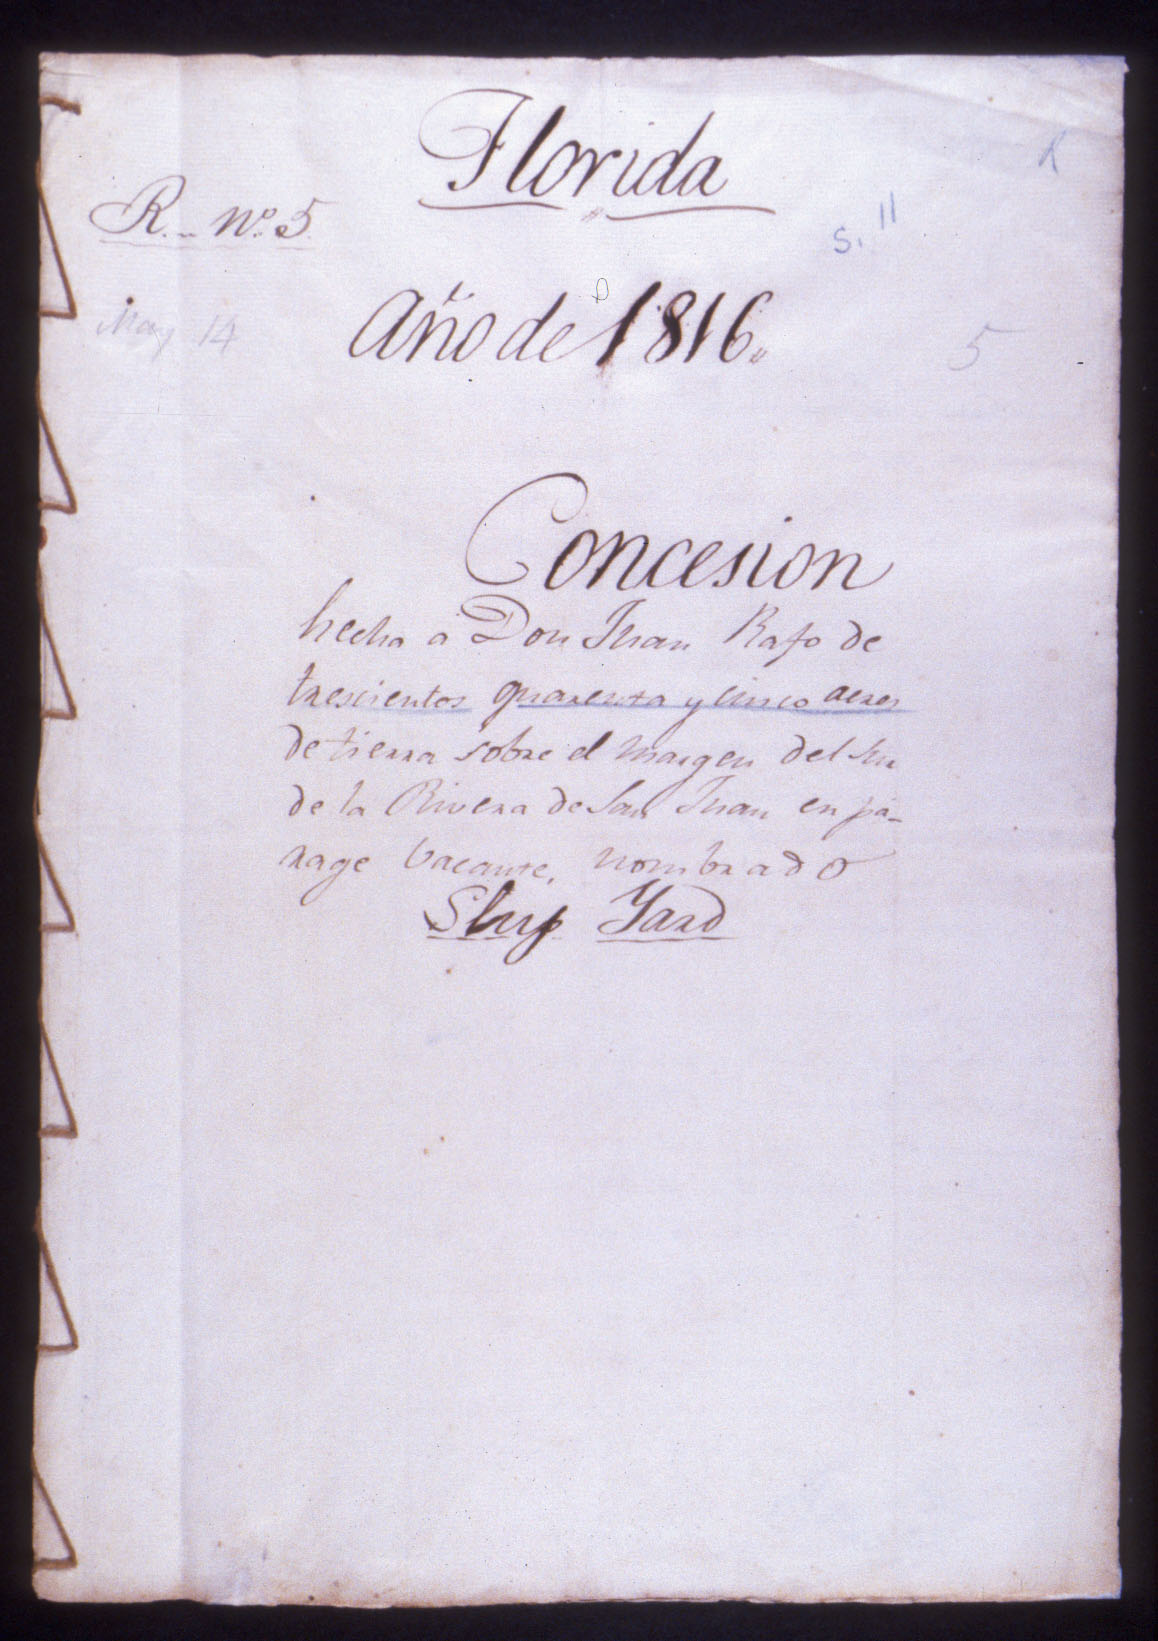 Florida
R. Nº. 5
R
S. 11
May 14
Año de 1816.
5
Concesion
hecha a Don Juan Rafo de
trescientos quarenta y cinco acres
de tierra sobre el margen del Sur
de la Rivera de San Juan en pa-
rage vacante, nombrado
Ship Yard